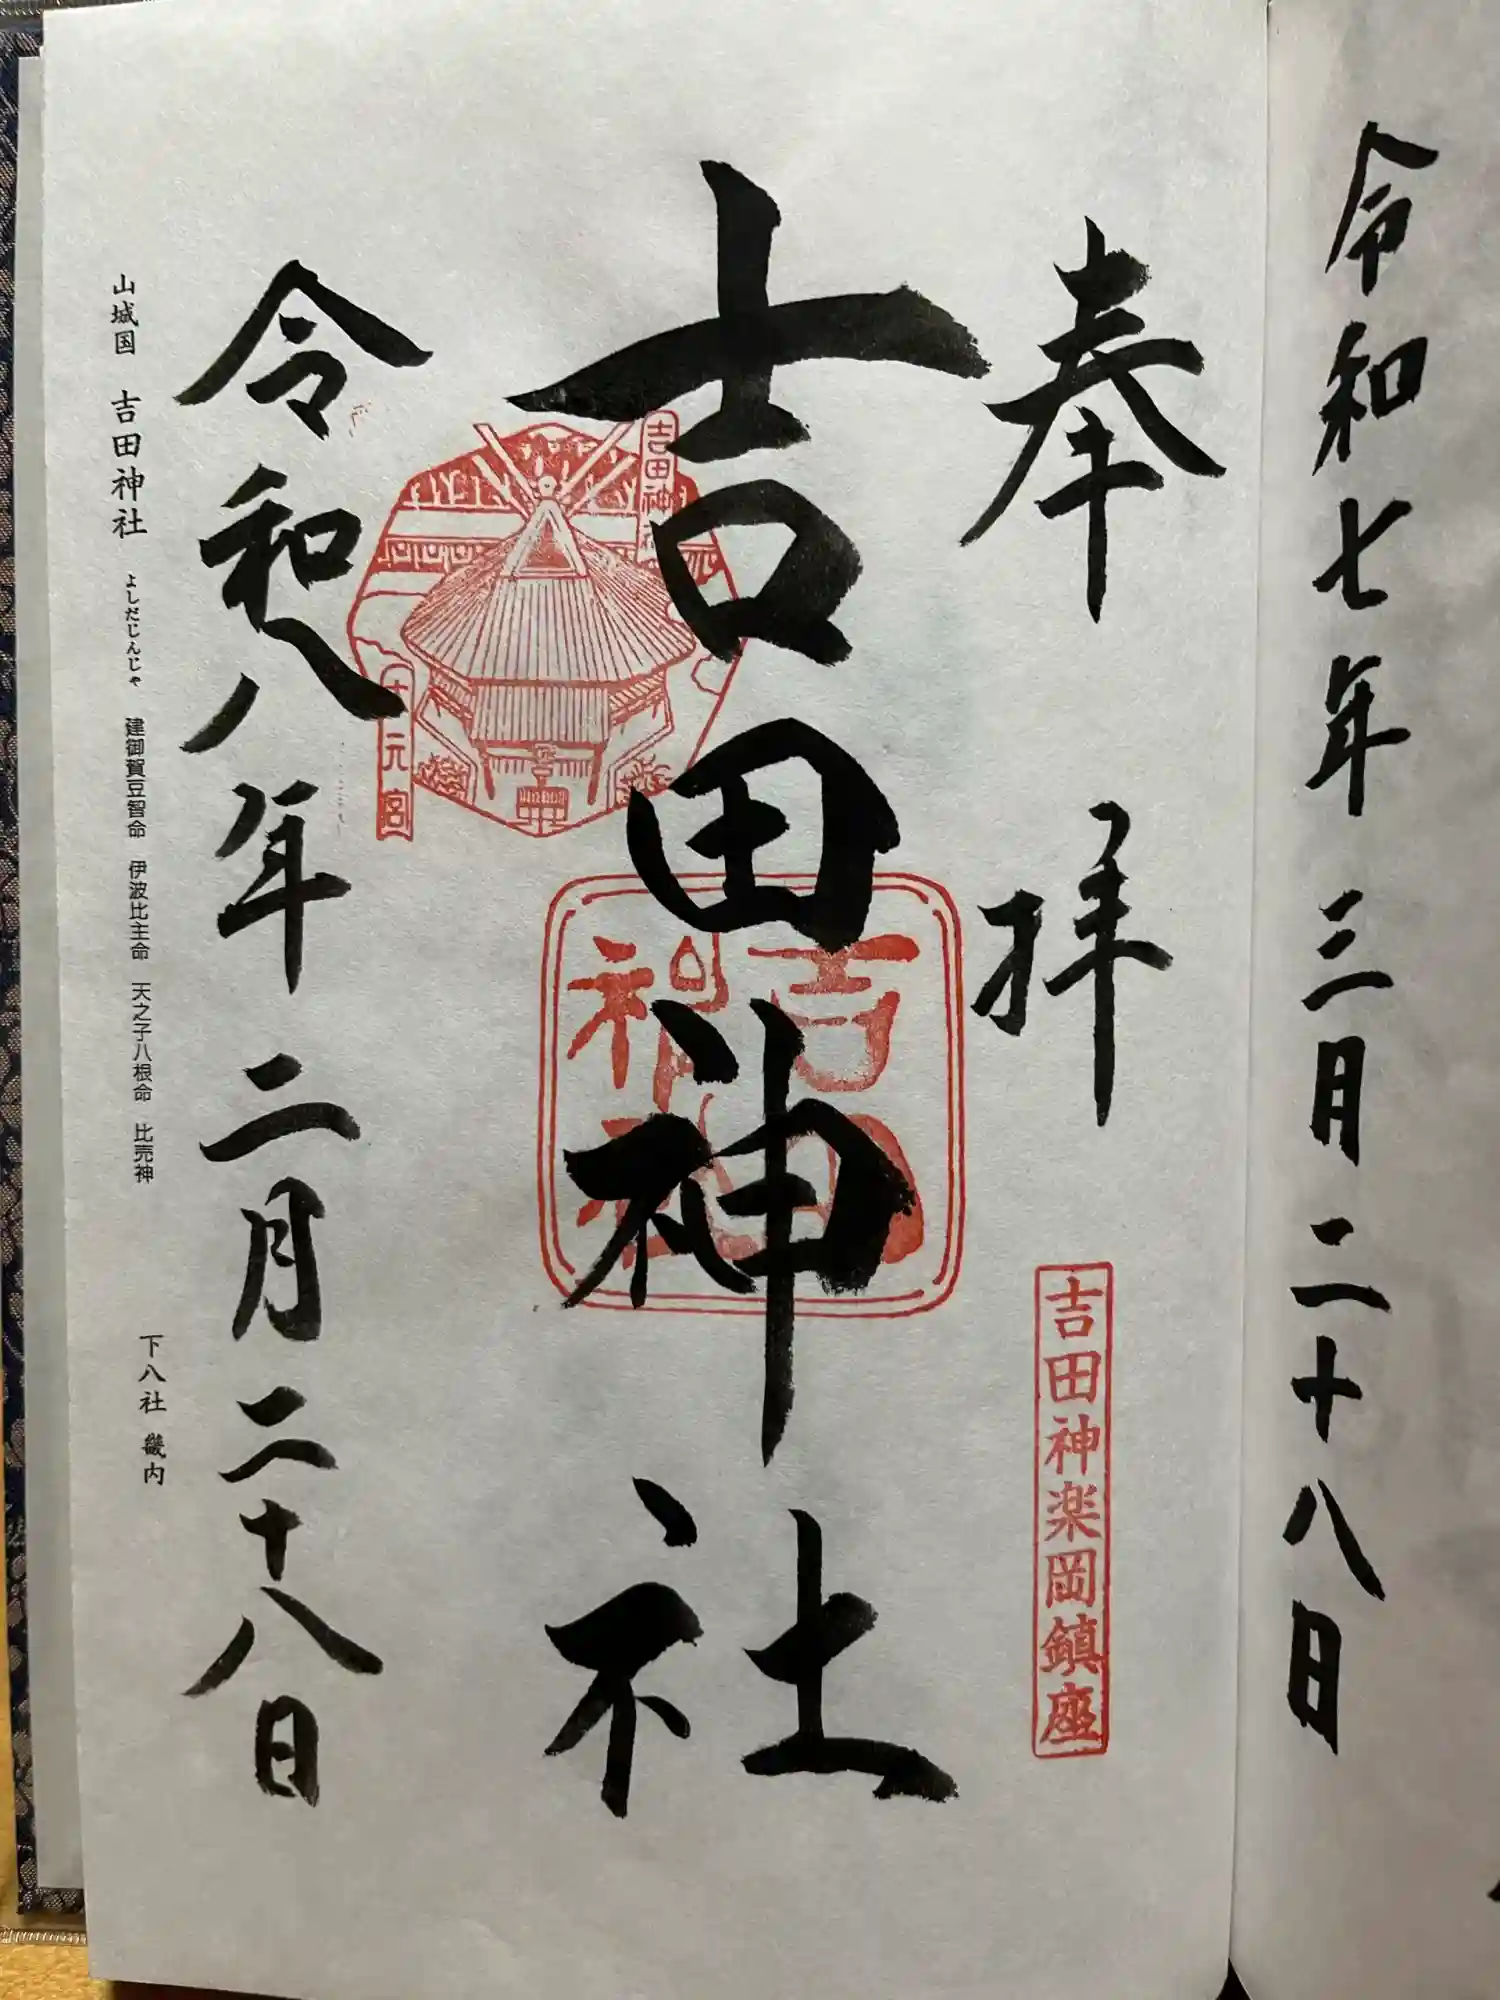 令和七年三月二十八日
奉拝
吉田神楽岡鎮座
吉田神社
吉田神社
吉田神社
大元宮
令和八年二月二十八日
山城国 吉田神社 よしだじんじゃ 建御賀豆智命 伊波比主命 天之子八根命 比売神 下八社 畿内